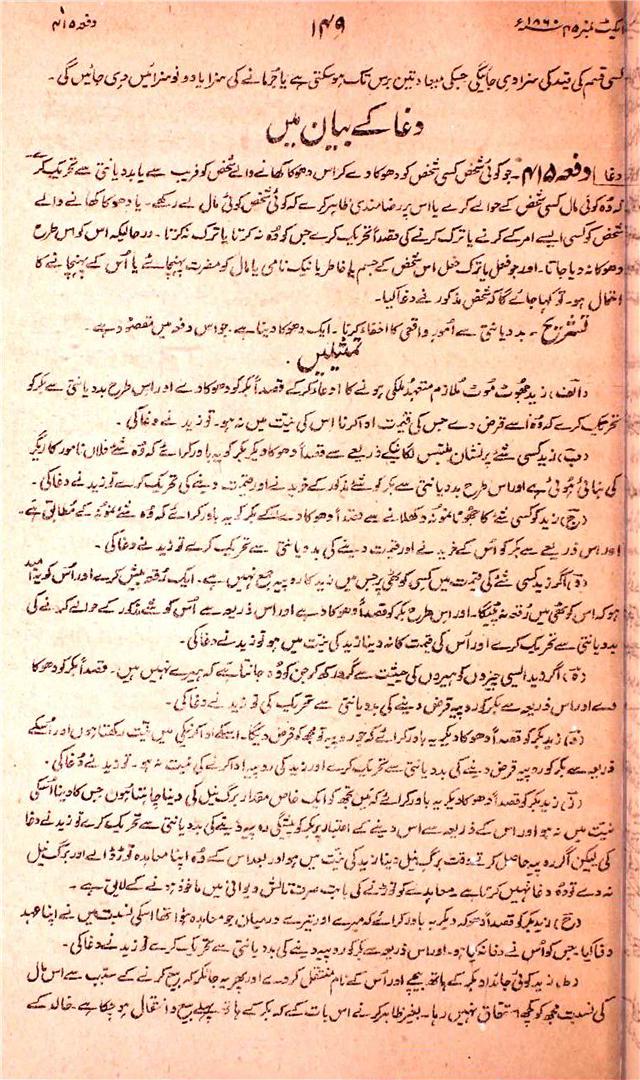 ایکٹ نمبر ۴۵ ۱۸۶۰ء ۱۴۹ دفعہ ۴۱۵
کسی قسم کی قید کی سزا دی جائیگی جسکی میعاد تین برس تک ہوسکتی ہے یا جُرمانے کی سزا یا دونو سزائیں دی جائیں گی۔
دغا کے بیان میں
دغا دفعہ ۴۱۵۔ جو کوئی شخص کسی شخص کو دھوکا دے کر اس دھوکا کھانے والے شخص کو فریب سے یا بددیانتی سے تحریک کرے
کہ وُہ کوئی مال کسی شخص کے حوالے کرے یا اس پر رضامندی ظاہر کرے کہ کوئی شخص کوئی مال لے رکھے۔ یا دھوکا کھانے والے
شخص کو کسی ایسے امر کے کرنے یا ترک کرنے کی قصداً تحریک کرے جس کو وُہ نہ کرتا یا ترک نہ کرتا۔ درحالیکہ اس کو اس طرح
دھوکا نہ دیا جاتا۔ اور جو فعل یا ترک فعل اس شخص کے جسم یا خاطر یا نیک نامی یا مال کو مضرت پہنچائے یا اُس کے پہنچانے کا
احتمال ہو۔ تو کہا جائے گا کہ شخص مذکور نے دغا کیا۔
تشریح۔ بددیانتی سے اُمور واقعی کا اخفاء کرنا۔ ایک دھوکا دینا ہے۔ جو اس دفعہ میں مقصود ہے۔
تمثیلیں۔
(الف) زید جھوٹ موٹ مُلازم متعہد ملکی ہونے کا ادعا کر کے قصداً بکر کو دھوکا دے اور اس طرح بددیانتی سے بکر کو
تحریک کرے کہ وُہ اُسے قرض دے جس کی قیمت ادا کرنا اس کی نیت میں نہ ہو۔ تو زید نے دغا کی۔
(ب) زید کسی شئے پر نشان ملتبس لگانیکے ذریعے سے قصداً دھوکا دیکر بکر کو یہ باور کرائے کہ وُہ شئے فلاں نامور کاریگر
کی بنائی ہُوئی ہے اور اس طرح بددیانتی سے بکر کو شئے مذکور کے خریدنے اور قیمت دینے کی تحریک کرے تو زید نے دغا کی۔
(ج) زید بکر کو کسی شئے کا جھوٹا نمونہ دکھلانے سے قصداً دھوکا دے کے بکر کو یہ باور کرائے کہ وُہ شئے نمونہ کے مُطابق ہے۔
اور اس ذریعے سے بکر کو اُس کے خریدنے اور قیمت دینے کی بددیانتی سے تحریک کرے تو زید نے دغا کی۔
(د) اگر زید کسی شئے کی قیمت میں کسی کوٹھی پر جس میں زید کا روپیہ جمع نہیں ہے۔ ایک رُقعہ پیش کرے اور اُس کو یہ اُمید
ہو کہ اس کوٹھی میں رُقعہ نہ پٹیگا۔ اور اس طرح بکر کو قصداً دھوکا دے اور اس ذریعہ سے اُس کو شئے مذکور کے حوالے کرنے کی
بددیانتی سے تحریک کرے اور اُس کی قیمت کا نہ دینا زید کی نیت میں ہو تو زید نے دغا کی۔
(ہ) اگر زید ایسی چیزوں کو ہیروں کی حیثیت سے گرو رکھ کر جن کو وُہ جانتا ہے کہ ہیرے نہیں ہیں۔ قصداً بکر کو دھوکا
دے اور اس ذریعہ سے بکر کو روپیہ قرض دینے کی بددیانتی سے تحریک کی تو زید نے دغا کی۔
(و) زید بکر کو قصداً دھوکا دیکر یہ باور کرائے کہ جو روپیہ تو مجھ کو قرض دیگا۔ اسکے ادا کرنیکی میں نیت رکھتا ہوں اور اُسکے
ذریعہ سے بکر کو روپیہ قرض دینے کی بددیانتی سے تحریک کرے اور زید کی روپیہ ادا کرنے کی نیت نہ ہو۔ تو زید نے دُغا کی۔
(ز) زید بکر کو قصداً دھوکا دیکر یہ باور کرائے کہ میں تجھ کو ایک خاص مقدار برگ نیل کی دینا چاہتا ہوں جس کا دینا اُسکی
نیت میں نہ ہو اور اس کے ذریعہ سے اس دینے کے اعتبار پر بکر کو پیشگی روپیہ دینے کی بددیانتی سے تحریک کرے تو زید نے دغا
کی لیکن اگر روپیہ حاصل کرتے وقت برگ نیل دینا زید کی نیت میں ہو اور بعد اس کے وُہ اپنا معاہدہ توڑ ڈالے اور برگ نیل
نہ دے تو وُہ دغا نہیں کرتا ہے معاہدے کو توڑنے کی بابت صرف نالش دیوانی میں ماخوذ ہونے کے لایق ہے۔
(ح) زید بکر کو قصداً دھوکہ دیکر یہ باور کرائے کہ میرے اور تیرے درمیان جو معاہدہ ہؤا تھا اسکی نسبت میں نے اپنا عہد
وفا کیا۔ جس کو اُس نے وفا نہ کیا ہو۔ اور اس ذریعہ سے بکر کو روپیہ دینے کی بددیانتی سے تحریک کرے تو زید نے دغا کی۔
(ط) زید کوئی جائداد بکر کے ہاتھ بیچے اور اُس کے نام منتقل کردے اور پھر یہ جانکر کہ بیع کرنے کے سبب سے اس مال
کی نسبت مجھ کو کچھ استحقاق نہیں رہا۔ بغیر ظاہر کرنے اس بات کے کہ بکر کے ہاتھ پہلے بیع و انتقال ہوچکا ہے خالد کے